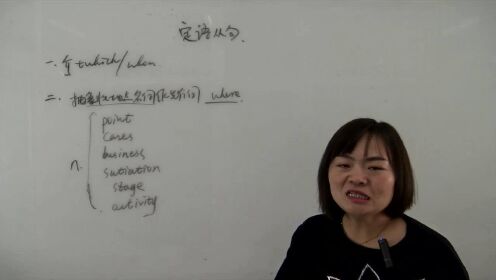 定语从句.
一. 介+which/when
二. 抽象地点名词作先行词 where.
n.
point
cases
business
sutiation
stage
autivity